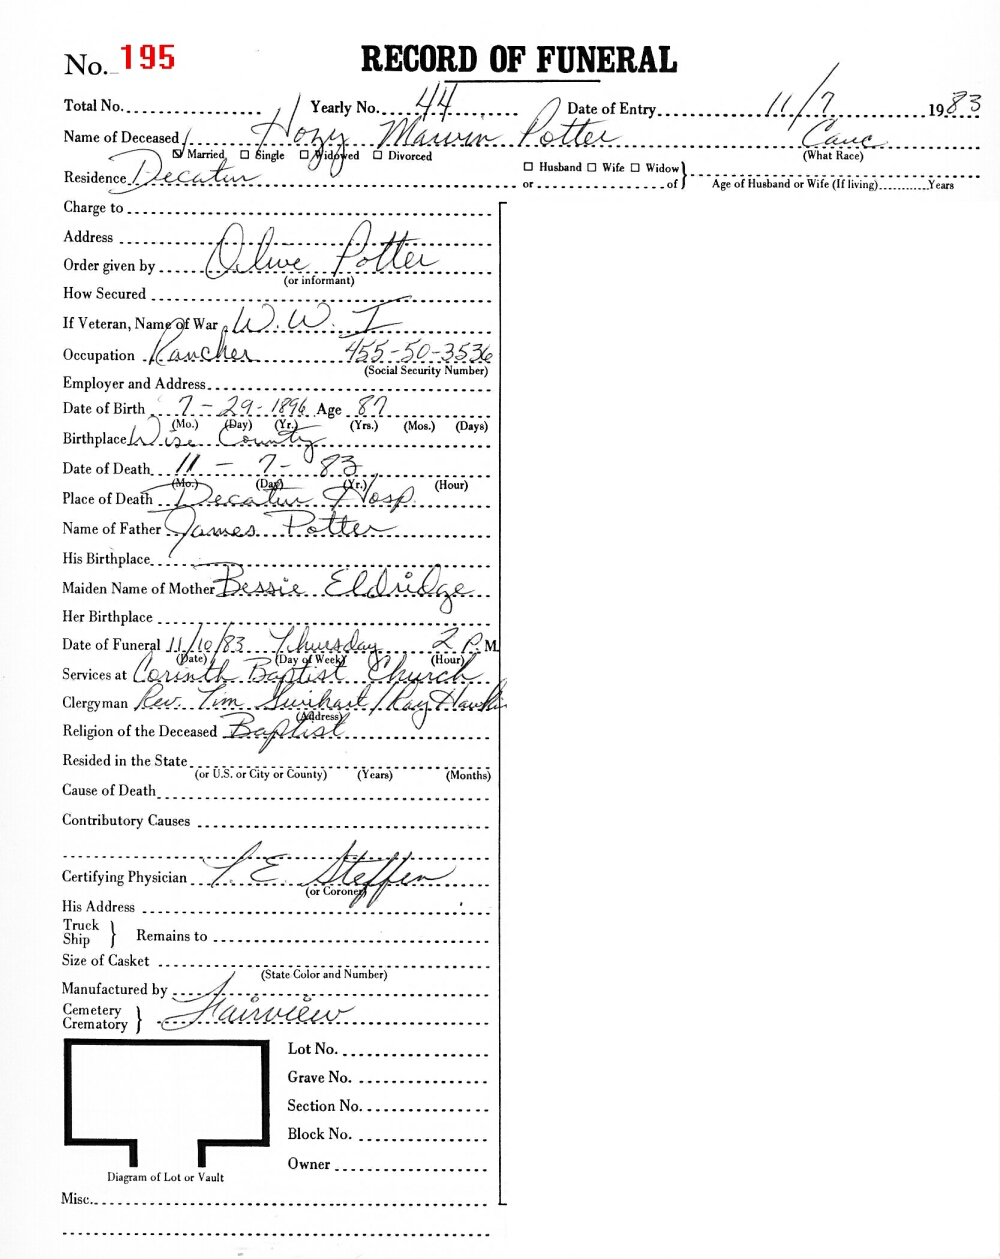 No. 195 RECORD OF FUNERAL
Total No. Yearly No. 44 Date of Entry 11/7 1983
Name of Deceased Hozy Marvin Potter Cauc
Married Single Widowed Divorced (What Race)
Residence Decatur Husband Wife Widow
or of Age of Husband or Wife (If living) Years
Charge to
Address
Order given by Olive Potter
(or informant)
How Secured
If Veteran, Name of War W.W. I
Occupation Rancher 455-50-3536
(Social Security Number)
Employer and Address
Date of Birth 7-29-1896 Age 87
(Mo.) (Day) (Yr.) (Yrs.) (Mos.) (Days)
Birthplace Wise County
Date of Death 11 - 7 - 83
(Mo.) (Day) (Yr.) (Hour)
Place of Death Decatur Hosp.
Name of Father James Potter
His Birthplace
Maiden Name of Mother Bessie Eldridge
Her Birthplace
Date of Funeral 11/10/83 Thursday 2 P.M.
(Date) (Day of Week) (Hour)
Services at Corinth Baptist Church
Clergyman Rev. Tim / Ray
(Address)
Religion of the Deceased Baptist
Resided in the State
(or U.S. or City or County) (Years) (Months)
Cause of Death
Contributory Causes
Certifying Physician L. E. Steffen
(or Coroner)
His Address
Truck
Ship } Remains to
Size of Casket
(State Color and Number)
Manufactured by
Cemetery
Crematory } Fairview
Lot No.
Grave No.
Section No.
Block No.
Owner
Diagram of Lot or Vault
Misc.